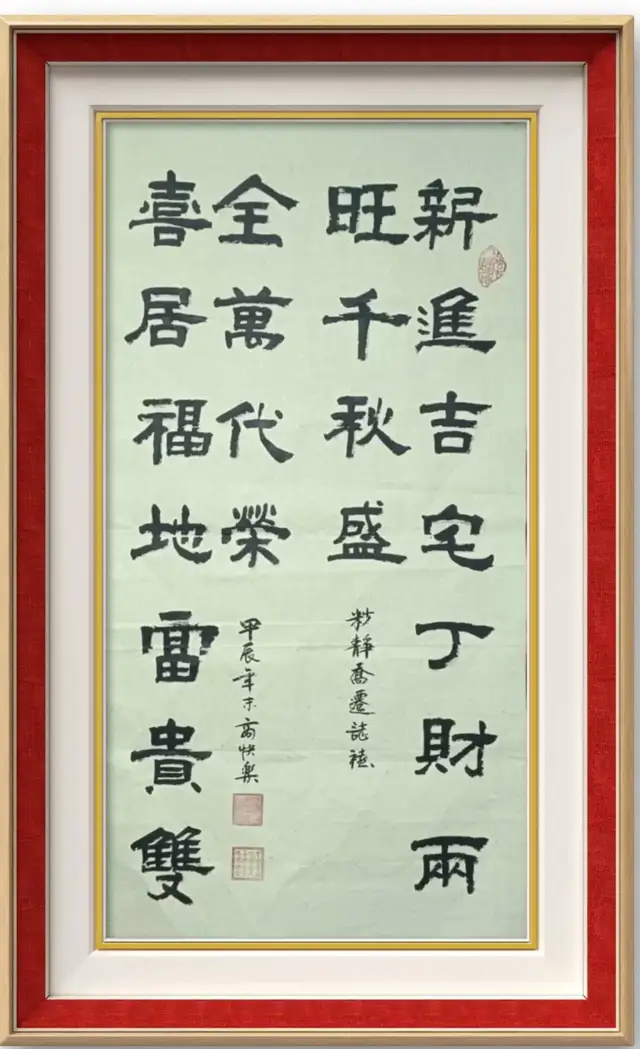 新進吉宅丁財兩
旺千秋盛
靜喬遷誌禧
喜居福地富貴雙
全萬代榮
甲辰年末高快樂